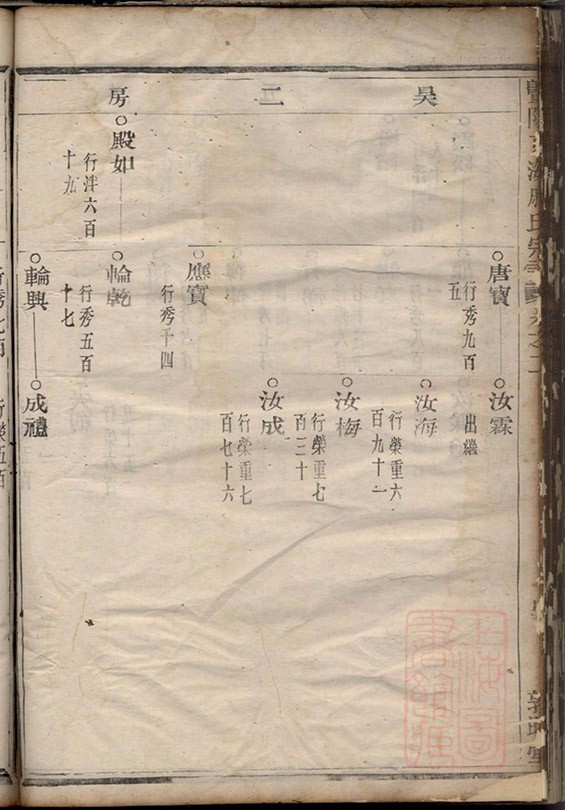 昊二房
唐寶
行秀九百
五
汝霖
出繼
汝海
行榮重六
汝梅
行榮重七
百三十
汝成
行榮重七
百七十六
應寶
行秀千四
殿如
行泮六百
十九
輪乾
行秀五百
十七
輪興
成禮
上海圖
書館藏